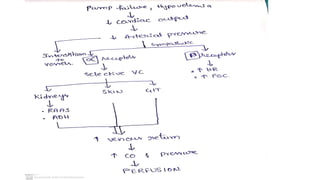 Pump failure, Hypovolemia
↓ Cardiac output
↓ Arterial pressure
Sympathetic
α Receptors
β Receptors
Selective VC
• ↑ HR
• ↑ FOC
Kidneys
SKIN
GIT
• RAAS
• ADH
↑ Venous return
↑ CO & Pressure
PERFUSION